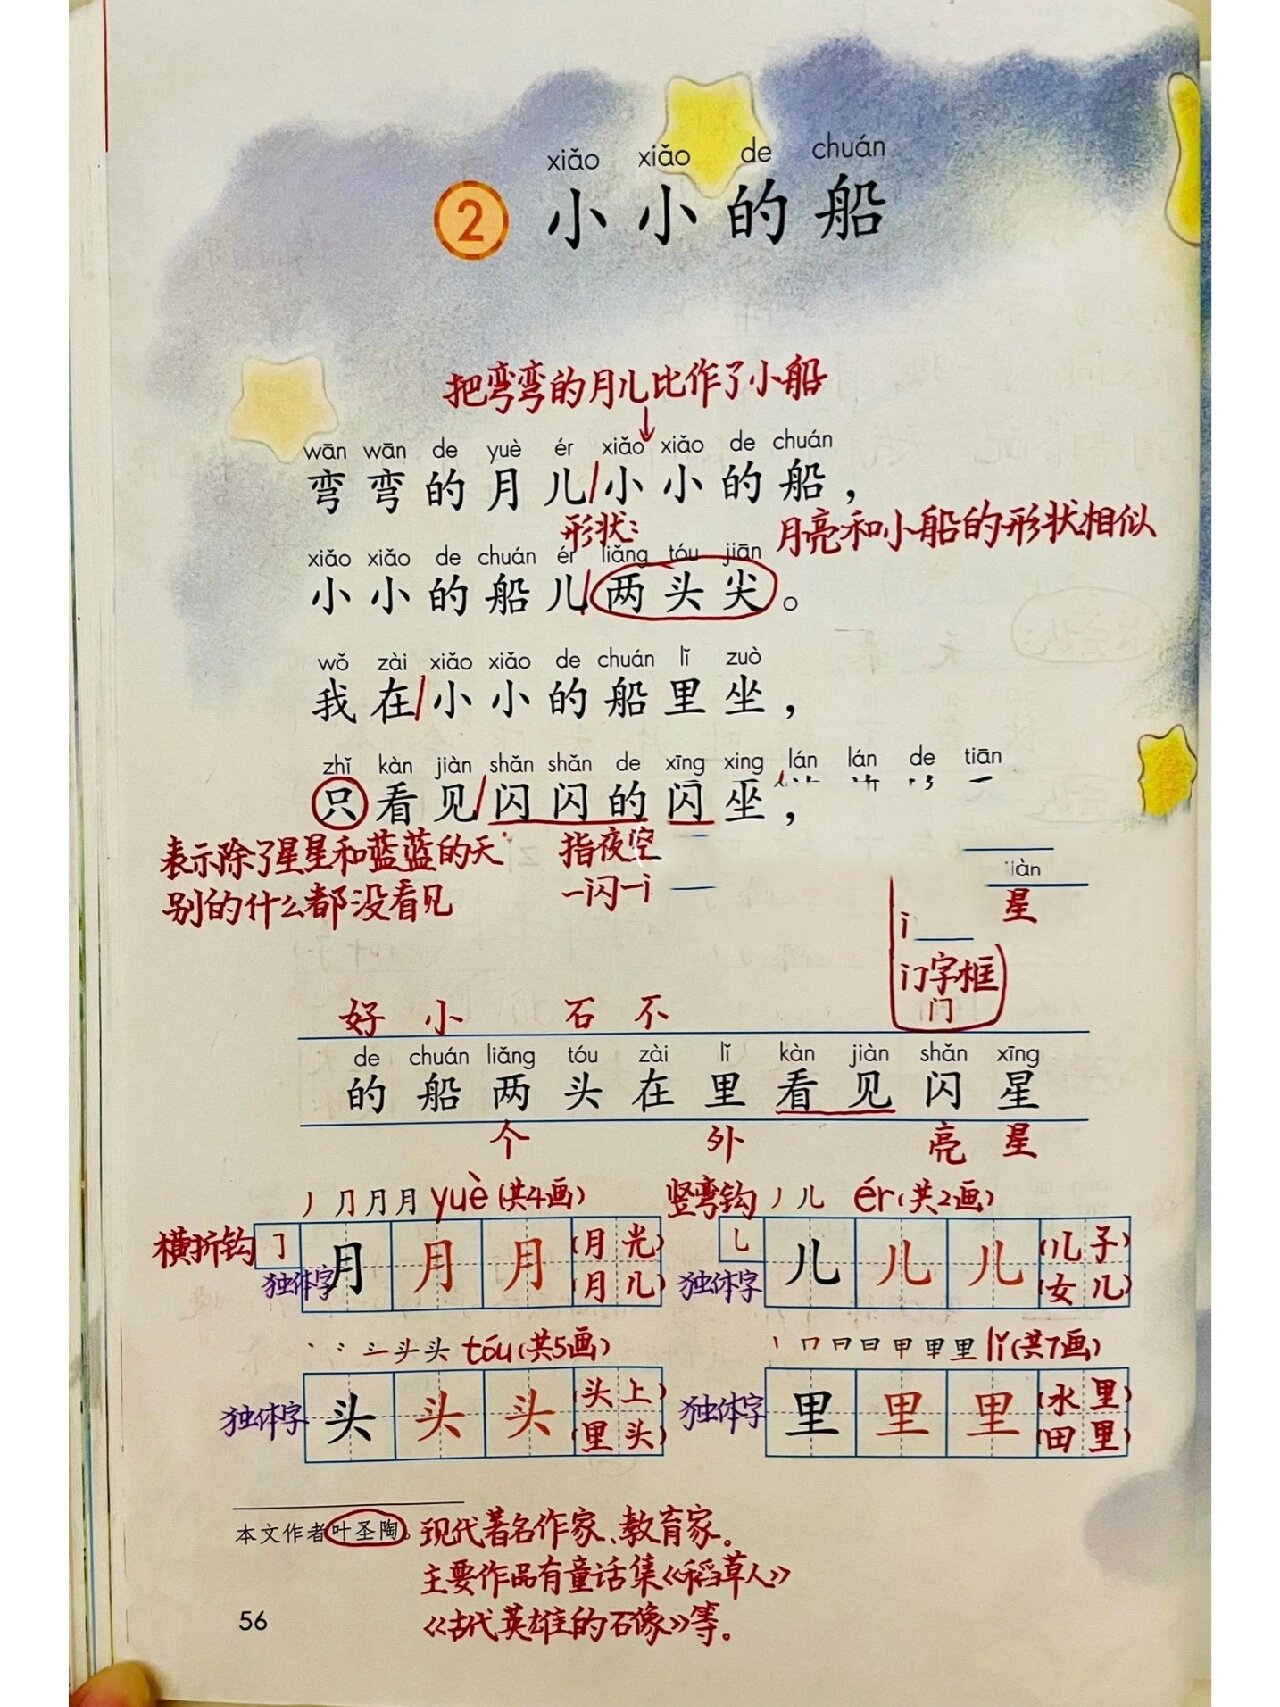 xiǎo xiǎo de chuán
2 小小的船
把弯弯的月儿比作了小船
wān wān de yuè ér xiǎo xiǎo de chuán
弯弯的月儿/小小的船，
形状：
月亮和小船的形状相似
xiǎo xiǎo de chuán ér liǎng tóu jiān
小小的船儿/两头尖。
wǒ zài xiǎo xiǎo de chuán lǐ zuò
我在/小小的船里坐，
zhǐ kàn jiàn shǎn shǎn de xīng xing lán lán de tiān
只看见/闪闪的闪坐，
表示除了星星和蓝蓝的天
别的什么都没看见
指夜空
一闪一
iàn
星
门字框
门
好 小 石 不
de chuán liǎng tóu zài lǐ kàn jiàn shǎn xīng
的船两头在里看见闪星
个 外 亮 星
丿 ⺆ 月 月 yuè(共4画)
横折钩 ㇆ 月 月 月 (月光)
(月儿)
独体字
丿 儿 ér(共2画)
竖弯钩 乚 儿 儿 儿 (儿子)
(女儿)
独体字
头 tóu(共5画)
独体字 头 头 头 (头上)
(里头)
丨 冂 日 日 甲 里 里 lǐ(共7画)
独体字 里 里 里 (水里)
(田里)
本文作者叶圣陶。现代著名作家、教育家。
主要作品有童话集《稻草人》
《古代英雄的石像》等。
56